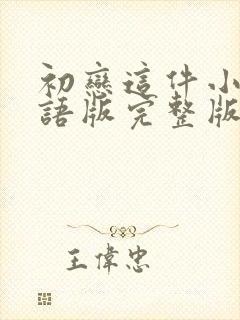 初戀這件小
語版完整版
王偉忠